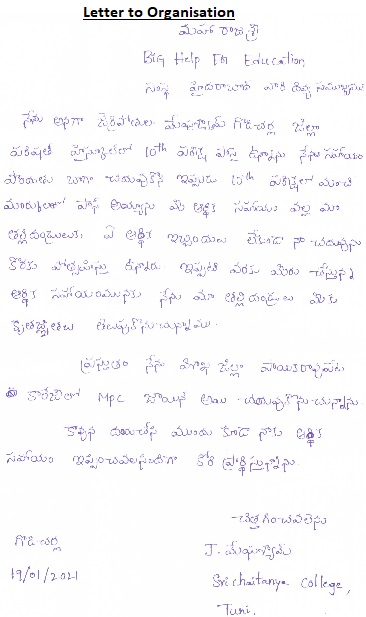 Letter to Organisation
మహా రాజశ్రీ
BIG Help For Education
సంస్థ హైదరాబాద్ వారి దివ్య సముఖమునకు
నేను అనగా మేఘశ్యామ్ గొడిచర్ల జిల్లా
పరిషత్ హైస్కూల్‌లో 10th పరీక్ష పాస్ ఉన్నాను నేను సహాయం
బాగా చదువుకొని ఇప్పుడు 10th పరీక్షలో మంచి
మార్కులతో పాస్ అయ్యాను మీ ఆర్థిక సహాయం వల్ల మా
తల్లిదండ్రులకు ఏ ఆర్థిక ఇబ్బందులు లేకుండా నా చదువును
కొరకు ఉన్నారు. ఇప్పటి వరకు మీరు చేస్తున్న
ఆర్థిక సహాయంమునకు నేను మా తల్లిదండ్రులు మీకు
కృతజ్ఞతలు తెలుపుకొనుచున్నాము.
ప్రస్తుతం నేను జిల్లా పాయకరావుపేట
కాలేజీలో MPC జాయిన్ అయి చదువుకొనుచున్నాను.
కావున దయచేసి ముందు కూడా నాకు ఆర్థిక
సహాయం ఇప్పించవలసిందిగా కోరి ప్రార్థిస్తున్నాను.
చిత్తగించవలెను
గొడిచర్ల
J. మేఘశ్యామ్
19/01/2021
Sri chaitanya College,
Tuni.